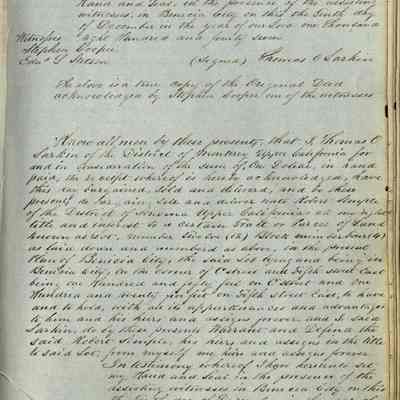 Hand and Seal, in the presence of the assisting
witnesses, in Benicia City on this the Tenth day
of December in the year of our Lord one thousand
Witnesses Eight Hundred and forty seven
Stephen Cooper
(Signed) Thomas O Larkin
The above is a true copy of the Original Deed
acknowledged by Stephen Cooper one of the witnesses
Know all men by these presents, that I Thomas O
Larkin of the District of Monterey Upper California for
and in consideration of the sum of One Dollar, in hand
paid, the receipt whereof is hereby acknowledged, have
this day bargained, Sold and delivered, and by these
presents do bargain, sell and deliver unto Robert Semple
of the District of Sonoma Upper California all my right
title and interest to a certain Tract or Parcel of Land
known as Lot, number Twelve (12) Block number
as laid down and numbered as above, in the general
Plan of Benicia City, the said Lot lying and being in
Benicia City, on the corner of C street and Fifth street East
being one Hundred and fifty feet on C street and one
Hundred and twenty feet on Fifth street East, to have
and to hold, with all its appurtenances and advantages
to him and his heirs and assigns forever and I said
Larkin, do by these presents Warrant and Defend the
said Robert Semple, his heirs and assigns in the title
to said Lot, from myself my heirs and assigns forever
In testimony whereof I have hereunto set
my Hand and Seal in the presence of the
assisting witnesses in Benicia City on this